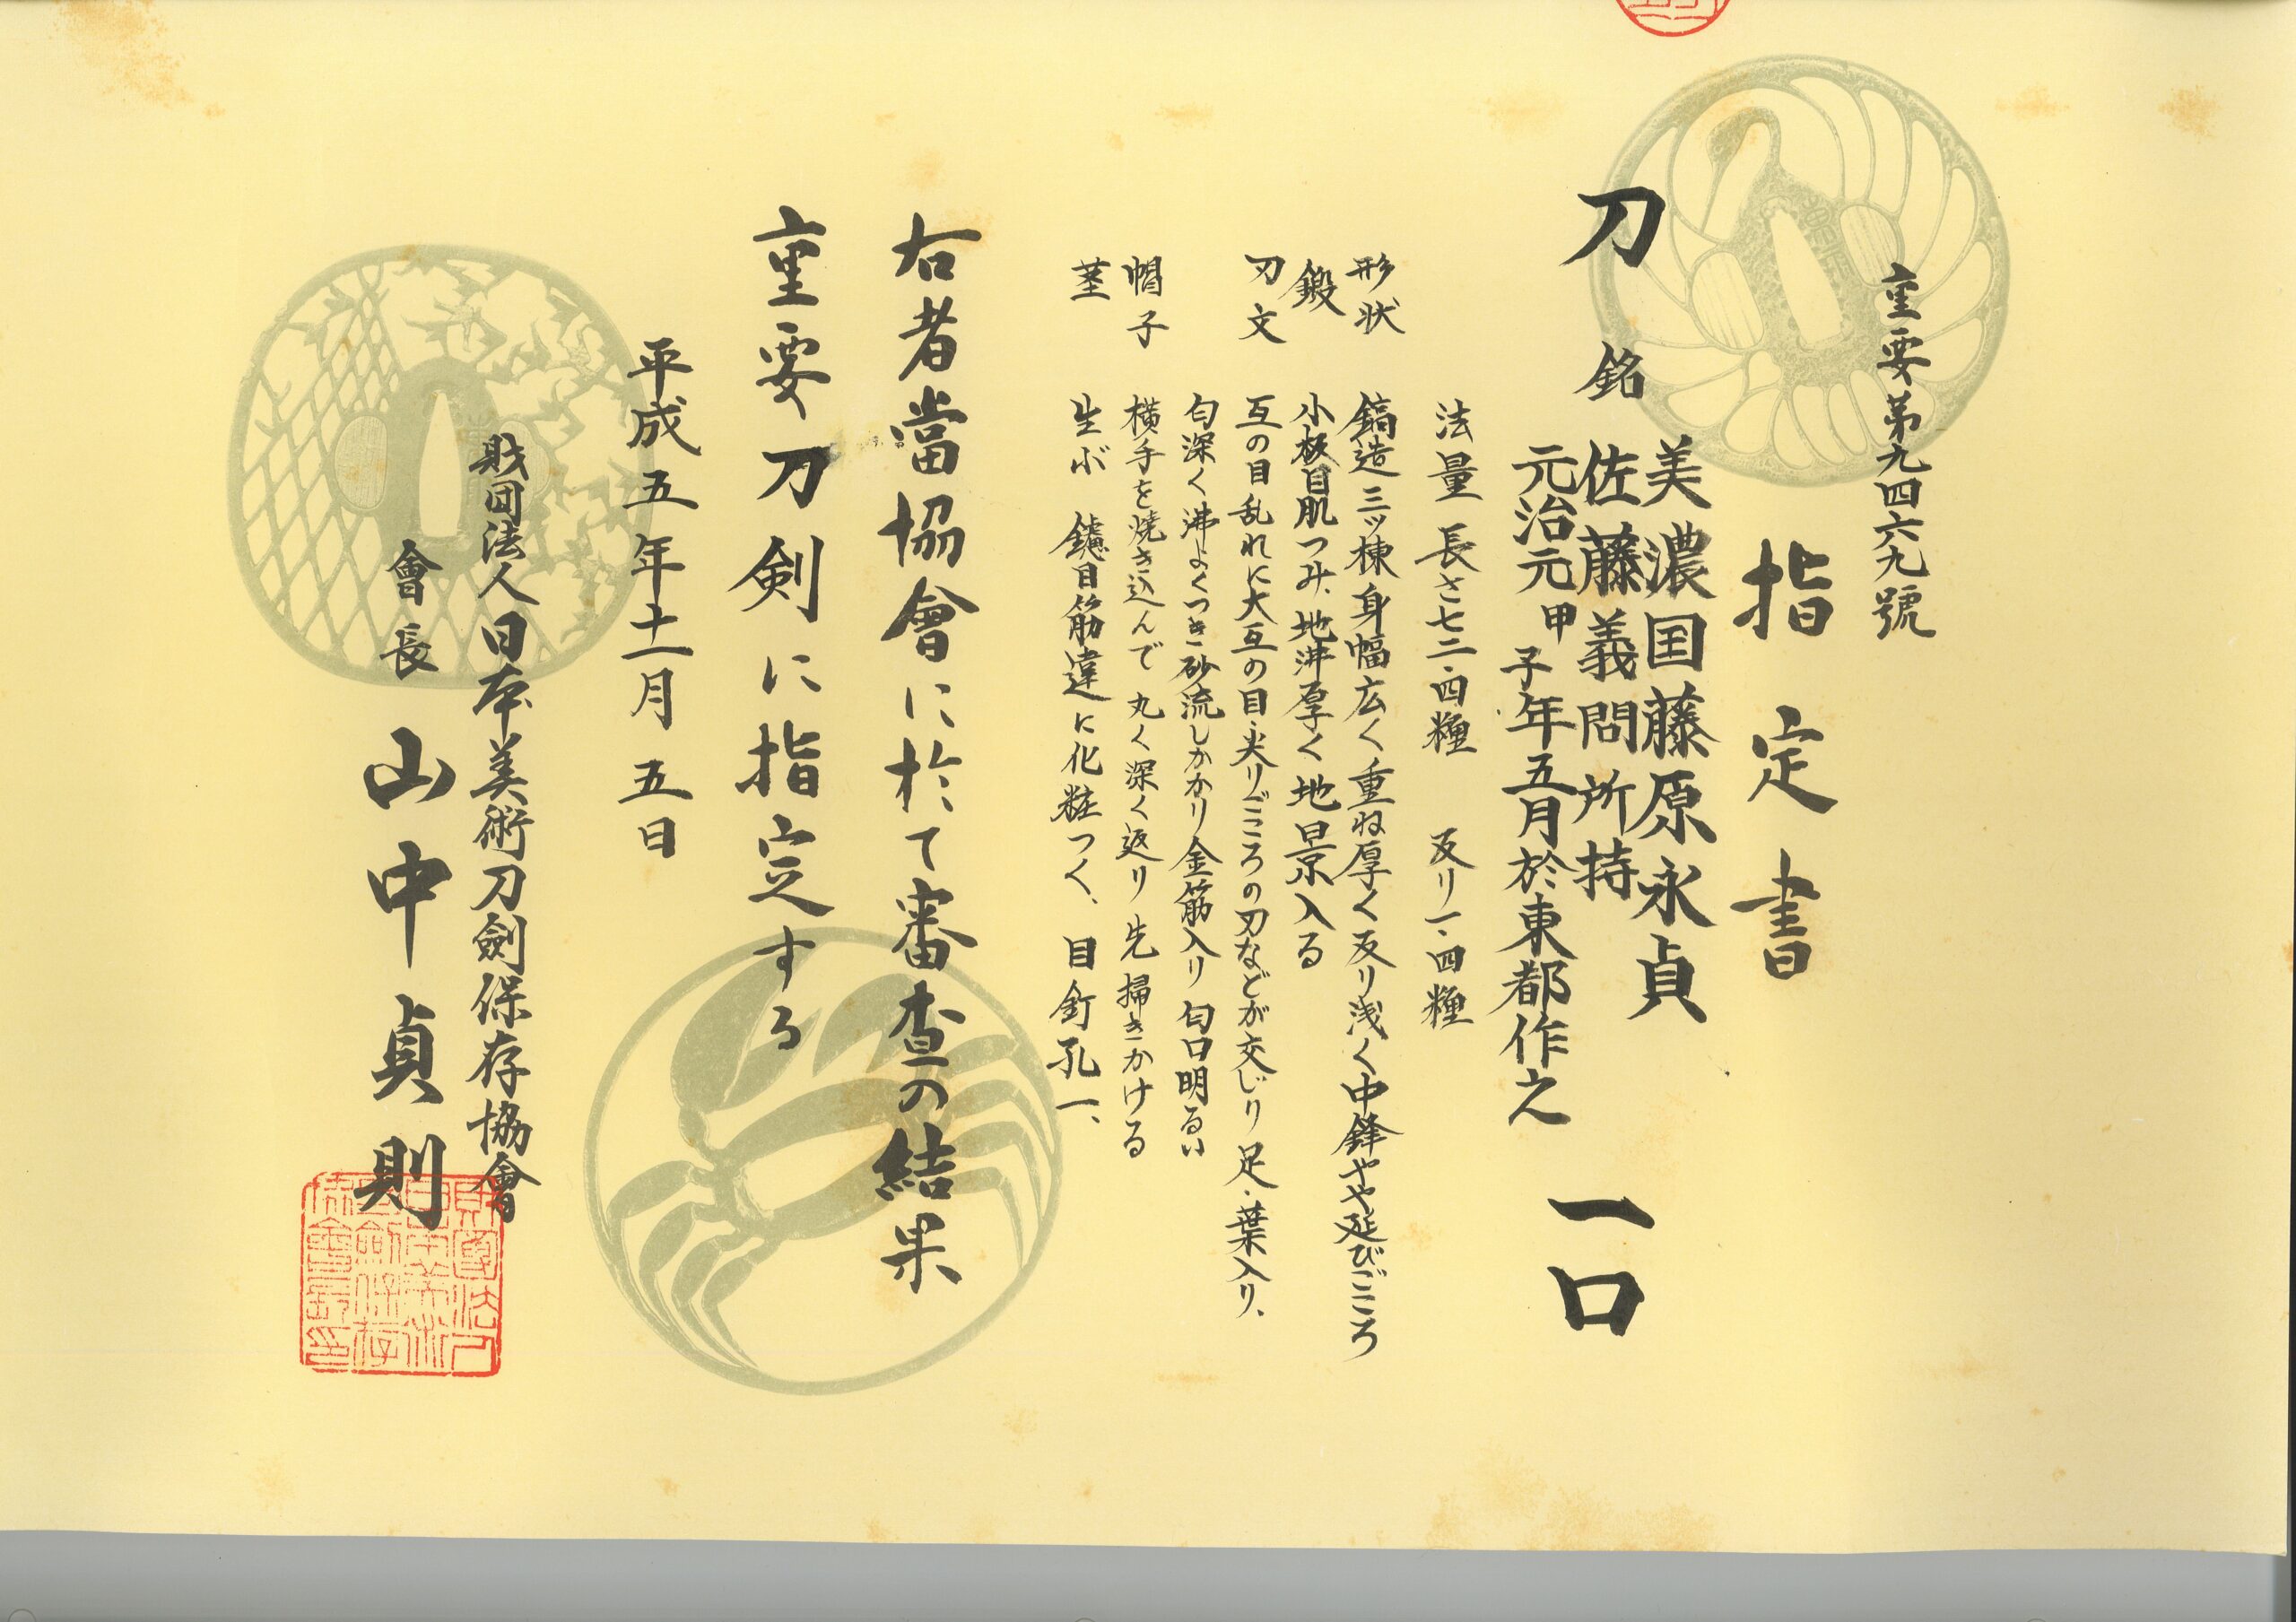 重要第九四六九號
指定書
刀 銘 美濃国藤原永貞
佐藤義問所持
元治元甲子年五月於東都作之
一口
法量 長さ七三・四糎 反り一・四糎
形状 鎬造 三ッ棟 身幅広く 重ね厚く 反り浅く 中鋒やや延びごころ
鍛 小板目肌つみ、地沸厚く 地景入る
刃文 互の目乱れに大互の目・尖りごころの刃などが交じり 足・葉入り、
匂深く 沸よくつき 砂流しかかり 金筋入り 匂口明るい
帽子 横手を焼き込んで 丸く深く返り 先掃きかける
茎 生ぶ 鑢目筋違に化粧つく、 目釘孔一、
右者當協會に於て審査の結果
重要刀剣に指定する
平成五年十一月五日
財団法人日本美術刀劍保存協會
會長 山中貞則